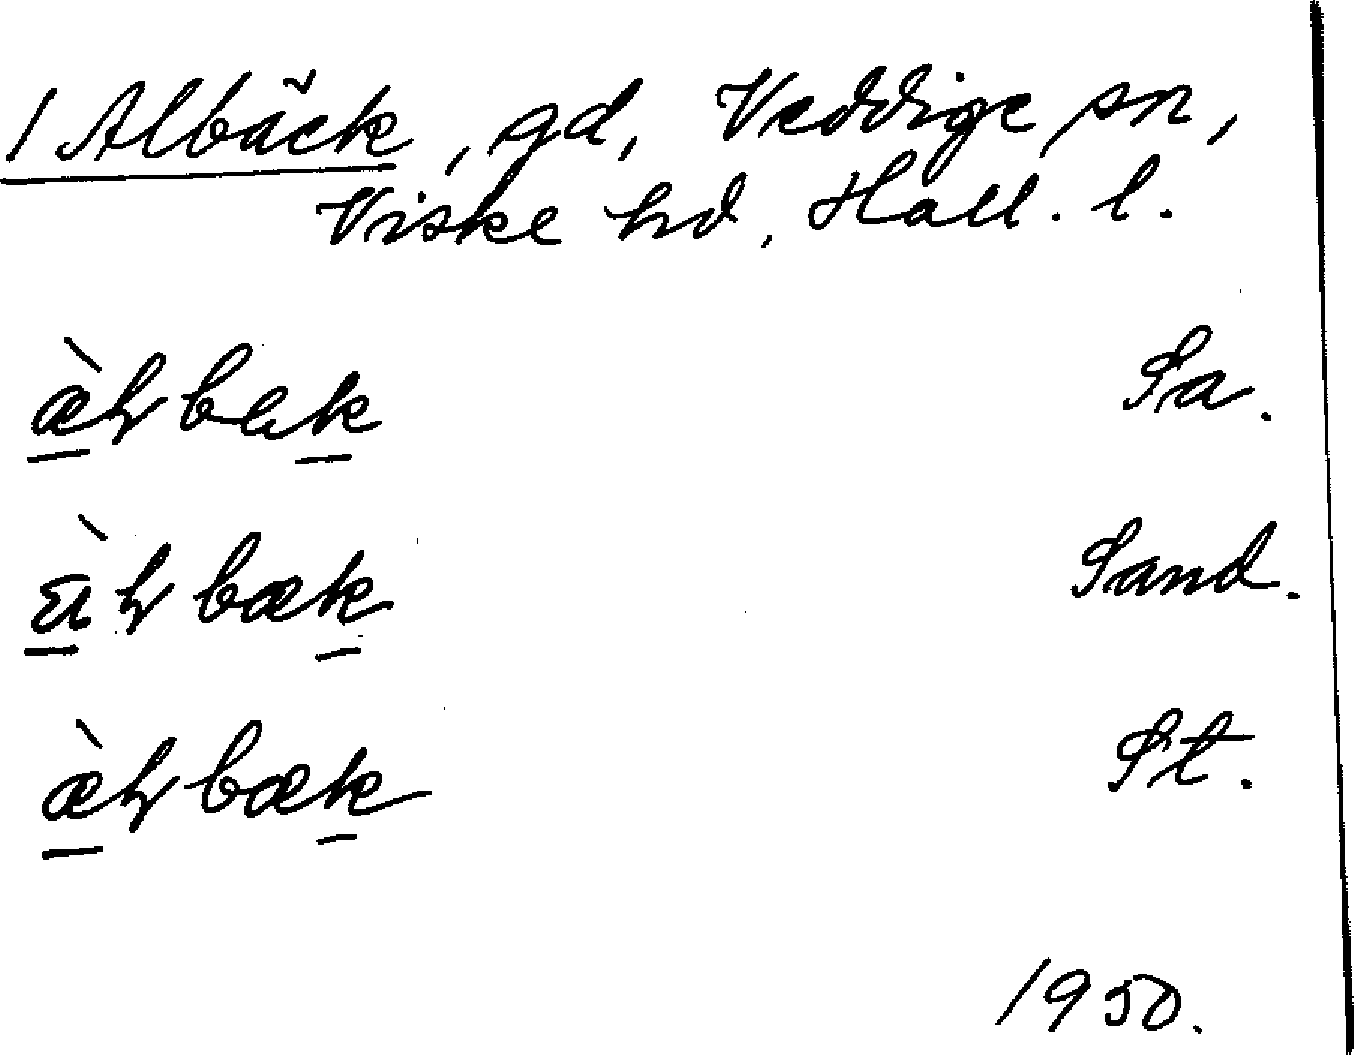 1 Albäck, gd, Veddige sn,
Viske hd, Hall. l.
æ̀ɫbek Sa.
æ̀ɫbæk Sand.
æ̀ɫbæk St.
1950.